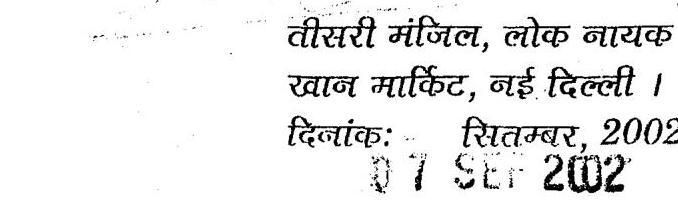 तीसरी मंजिल, लोक नायक
खान मार्किट, नई दिल्ली ।
दिनांक: सितम्बर, 2002
07 SEP 2002